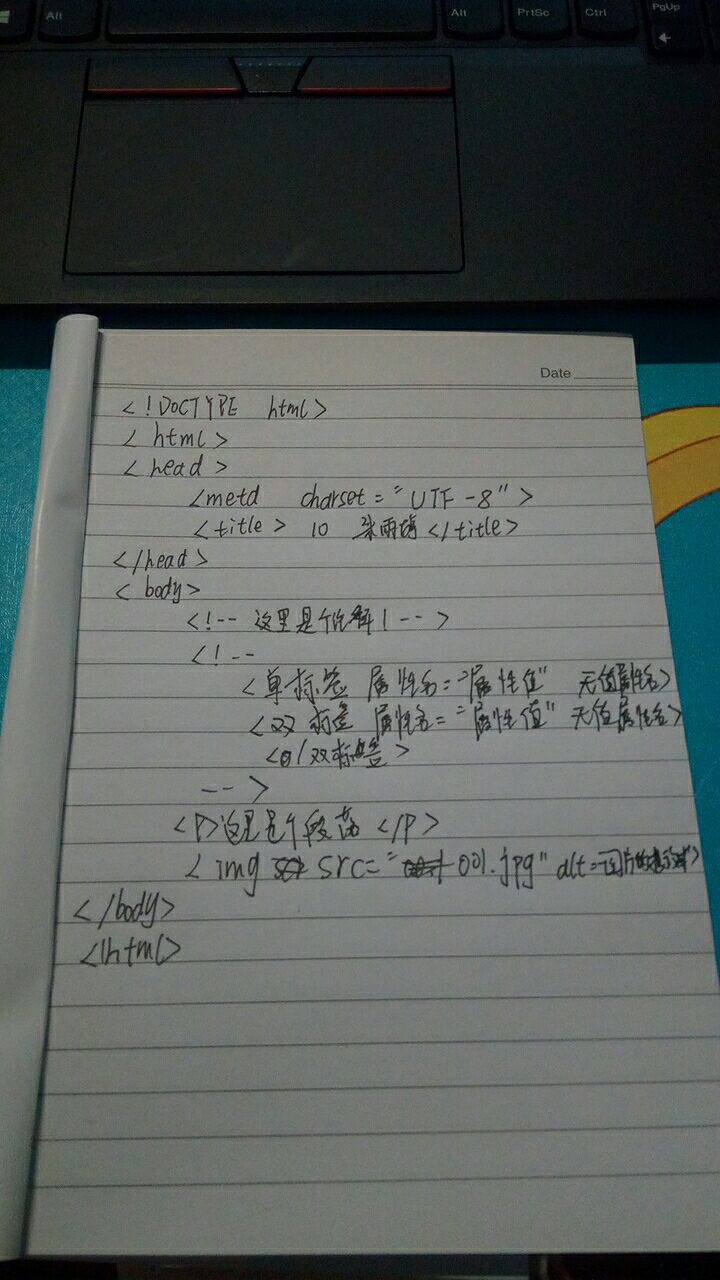 Alt
Alt
PrtSc
Ctrl
PgUp
Date
<!DOCTYPE html>
<html>
<head>
<metd charset="UTF-8">
<title> 10 雨 </title>
</head>
<body>
<!-- 这里是个注解! -->
<!--
<单标签 属性名="属性值" 无值属性名>
<双标签 属性名="属性值" 无值属性名>
</双标签>
-->
<P>这里是个段落 </P>
< img src="001.jpg" alt=图片的提示>
</body>
</html>